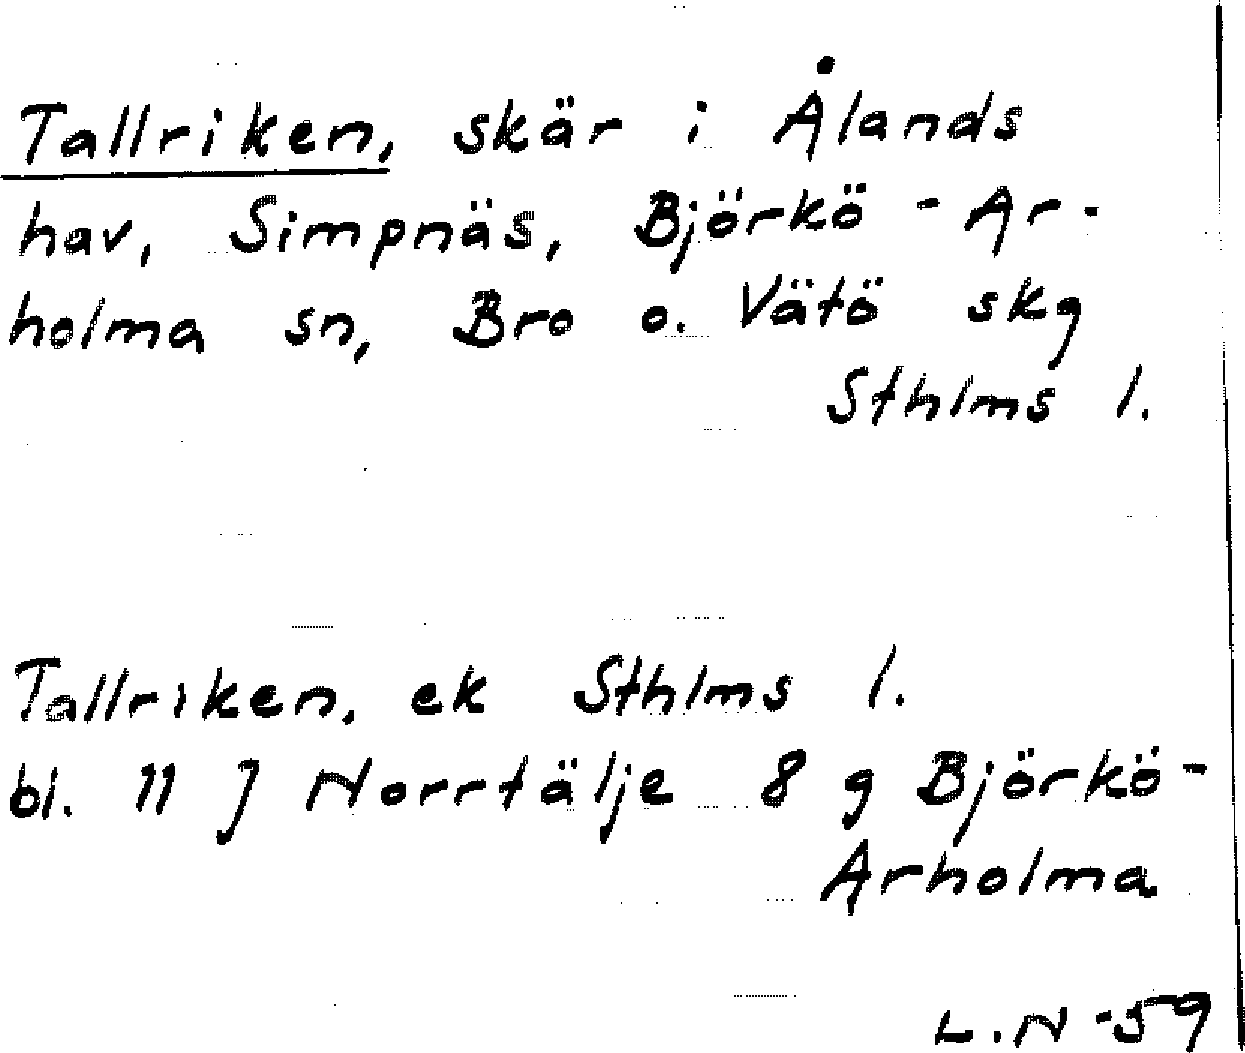 Tallriken, skär i Ålands
hav, Simpnäs, Björkö - Ar-
holma sn, Bro o. Vätö skg
Sthlms l.
Tallriken, ek Sthlms l.
bl. 11 J Norrtälje 8 g Björkö-
Arholma
L.N -59